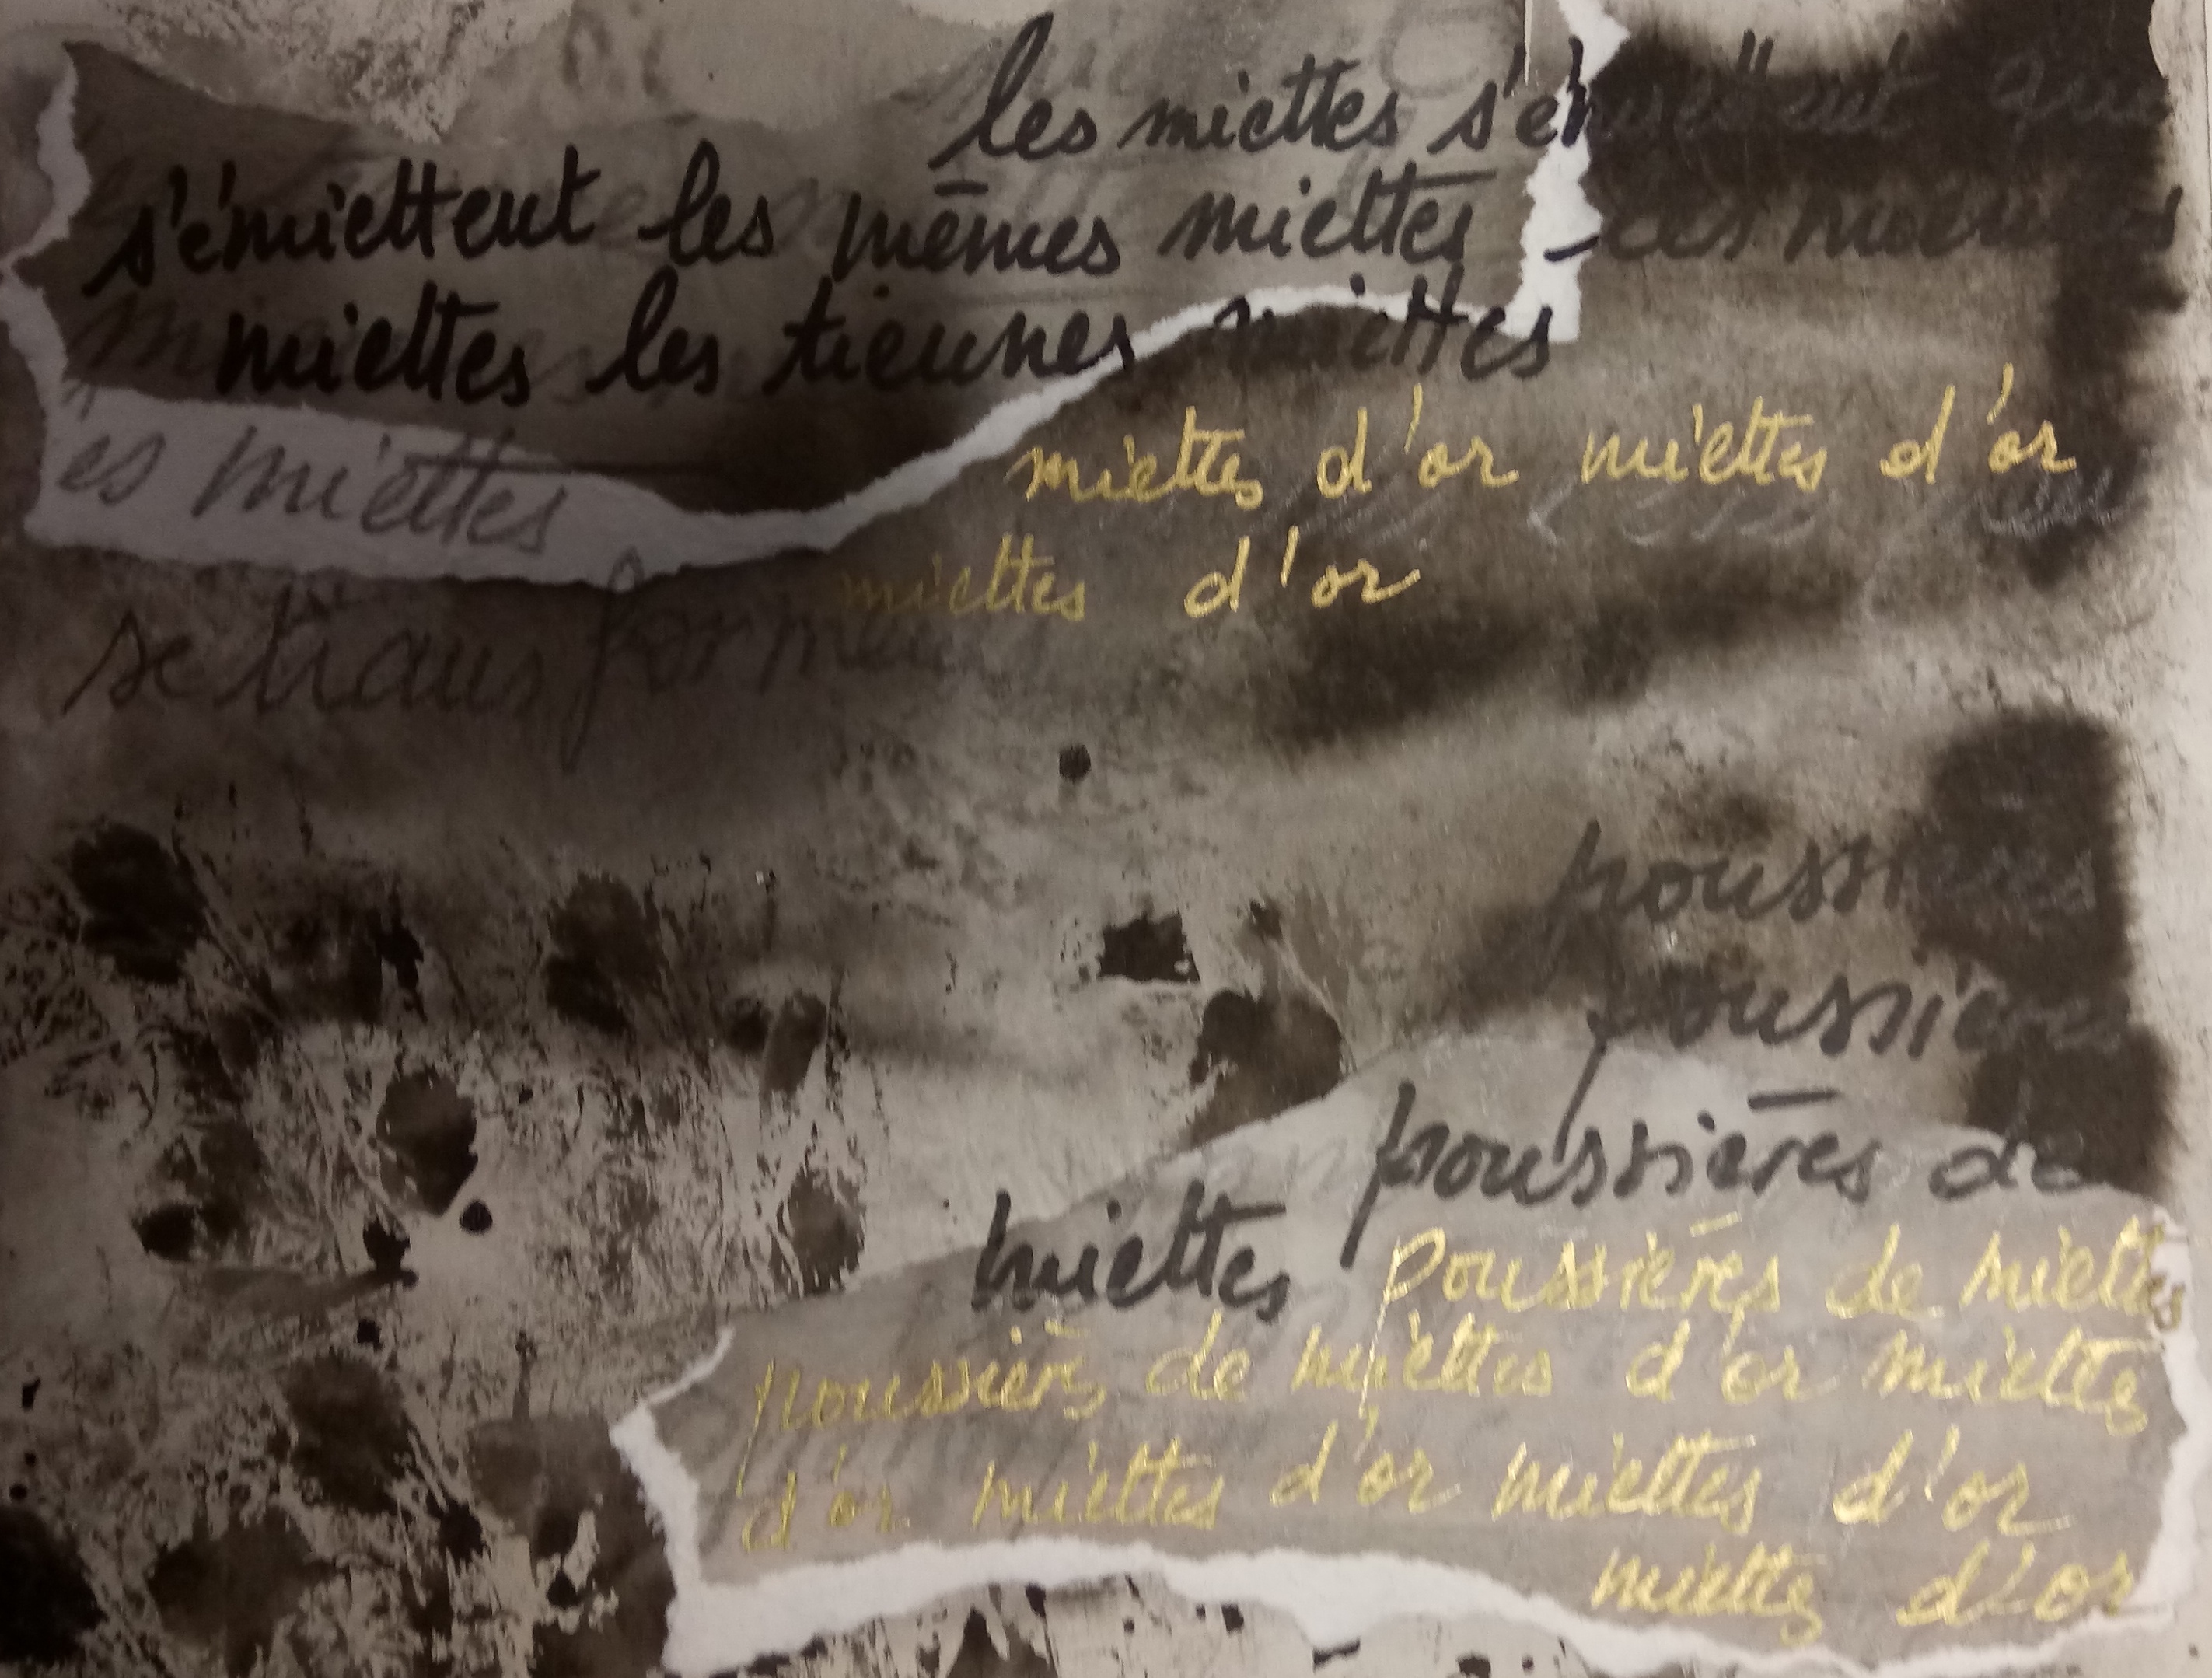 les miettes s'émiettent que
s'émiettent les mêmes miettes les miennes
miettes les tiennes miettes
es miettes
miettes d'or miettes d'or
miettes d'or
se transforment
poussières
poussières
poussières de
miettes
Poussières de miettes
poussières de miettes d'or miettes
d'or miettes d'or miettes d'or
miettes d'or